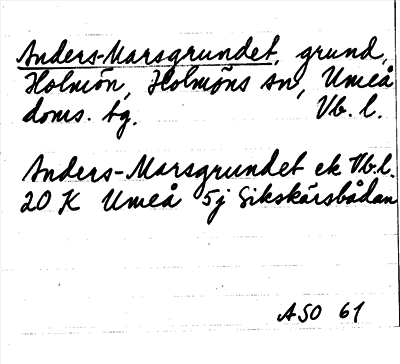 Anders-Marsgrundet, grund,
Holmön, Holmöns sn, Umeå
doms. tg. Vb. l.
Anders-Marsgrundet ek Vb.l.
20 K Umeå 5j Sikskärsbådan
ASO 61